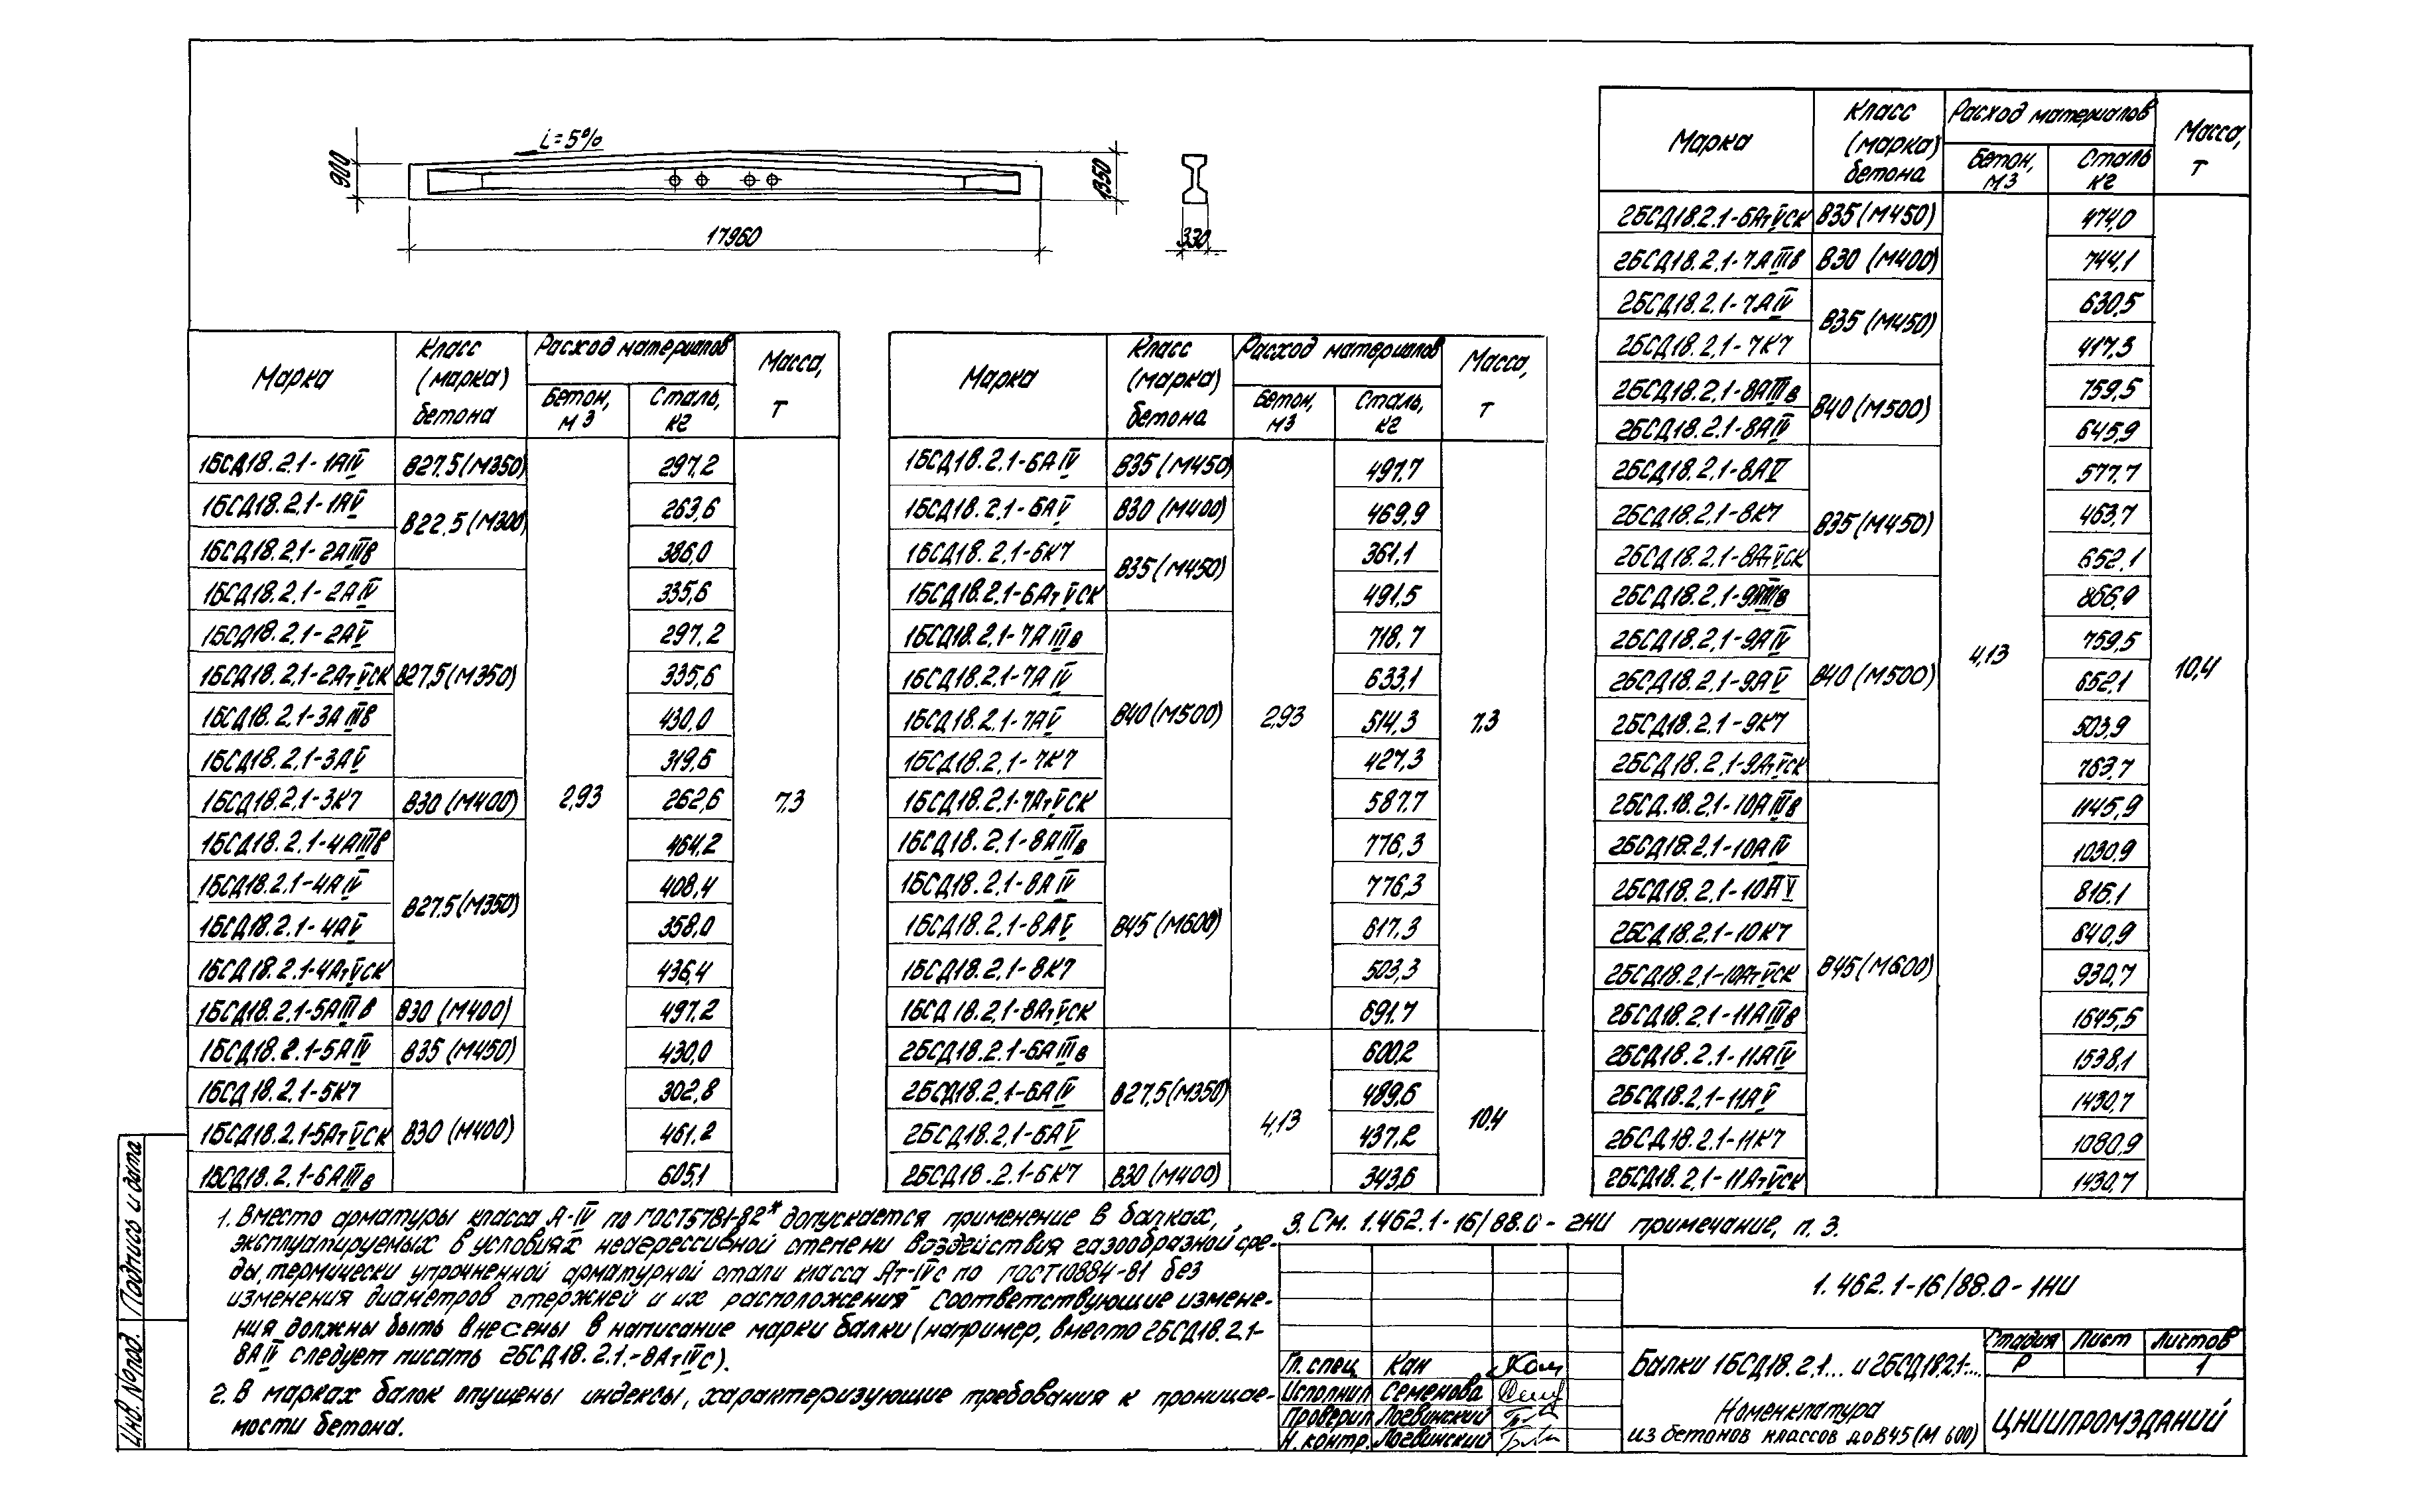 i=5%
900
1350
17960
330
Марка Класс (марка) бетона Расход материалов Масса, т
Бетон, м3 Сталь, кг
1БСД18.2.1-1АIV В27,5(М350) 297,2
1БСД18.2.1-1АV В22,5(М300) 263,6
1БСД18.2.1-2АIIIв 386,0
1БСД18.2.1-2АIV 335,6
1БСД18.2.1-2АV 297,2
1БСД18.2.1-2АтVСК В27,5(М350) 335,6
1БСД18.2.1-3АIIIв 430,0
1БСД18.2.1-3АV 319,6
1БСД18.2.1-3К7 В30 (М400) 2,93 262,6 7,3
1БСД18.2.1-4АIIIв 464,2
1БСД18.2.1-4АIV 408,4
1БСД18.2.1-4АV В27,5(М350) 358,0
1БСД18.2.1-4АтVСК 436,4
1БСД18.2.1-5АIIIв В30 (М400) 497,2
1БСД18.2.1-5АIV В35 (М450) 430,0
1БСД18.2.1-5К7 302,8
1БСД18.2.1-5АтVСК В30 (М400) 461,2
1БСД18.2.1-6АIIIв 605,1
Марка Класс (марка) бетона Расход материалов Масса, т
Бетон, м3 Сталь, кг
1БСД18.2.1-6АIV В35 (М450) 497,7
1БСД18.2.1-6АV В30 (М400) 469,9
1БСД18.2.1-6К7 В35 (М450) 361,1
1БСД18.2.1-6АтVСК 491,5
1БСД18.2.1-7АIIIв 718,7
1БСД18.2.1-7АIV 633,1
1БСД18.2.1-7АV В40 (М500) 2,93 514,3 7,3
1БСД18.2.1-7К7 427,3
1БСД18.2.1-7АтVСК 587,7
1БСД18.2.1-8АIIIв 776,3
1БСД18.2.1-8АIV 776,3
1БСД18.2.1-8АV В45 (М600) 617,3
1БСД18.2.1-8К7 503,3
1БСД18.2.1-8АтVСК 691,7
2БСД18.2.1-6АIIIв 600,2
2БСД18.2.1-6АIV В27,5(М350) 489,6
2БСД18.2.1-6АV 4,13 437,2 10,4
2БСД18.2.1-6К7 В30 (М400) 343,6
Марка Класс (марка) бетона Расход материалов Масса, т
Бетон, м3 Сталь кг
2БСД18.2.1-6АтVСК В35 (М450) 474,0
2БСД18.2.1-7АIIIв В30 (М400) 744,1
2БСД18.2.1-7АIV В35 (М450) 630,5
2БСД18.2.1-7К7 417,3
2БСД18.2.1-8АIIIв В40 (М500) 759,5
2БСД18.2.1-8АIV 645,9
2БСД18.2.1-8АV 577,7
2БСД18.2.1-8К7 В35 (М450) 463,7
2БСД18.2.1-8АтVСК 652,1
2БСД18.2.1-9АIIIв 866,9
2БСД18.2.1-9АIV 4,13 759,5
2БСД18.2.1-9АV В40 (М500) 652,1 10,4
2БСД18.2.1-9К7 503,9
2БСД18.2.1-9АтVСК 763,7
2БСД18.2.1-10АIIIв 1145,9
2БСД18.2.1-10АIV 1030,9
2БСД18.2.1-10АV 816,1
2БСД18.2.1-10К7 640,9
2БСД18.2.1-10АтVСК В45 (М600) 930,7
2БСД18.2.1-11АIIIв 1645,5
2БСД18.2.1-11АIV 1538,1
2БСД18.2.1-11АV 1430,7
2БСД18.2.1-11К7 1080,9
2БСД18.2.1-11АтVСК 1430,7
1. Вместо арматуры класса А-IV по ГОСТ5781-82* допускается применение в балках,
эксплуатируемых в условиях неагрессивной степени воздействия газообразной сре-
ды, термически упрочненной арматурной стали класса Ат-IVс по ГОСТ10884-81 без
изменения диаметров стержней и их расположения Соответствующие измене-
ния должны быть внесены в написание марки балки (например, вместо 2БСД18.2.1-
8АIV следует писать 2БСД18.2.1.-8АтIVс).
2. В марках балок опущены индексы, характеризующие требования к проницае-
мости бетона.
3. См. 1.462.1-16/88.0-2НИ примечание, п. 3.
1.462.1-16/88.0-1НИ
Гл.спец. Кан
Исполнил Семенова
Проверил Логвинский
Н. контр. Логвинский
Балки 1БСД18.2.1... и 2БСД18.2.1-...
Номенклатура
из бетонов классов до В45 (М 600)
Стадия Лист Листов
Р 1
ЦНИИПРОМЗДАНИЙ
Подпись и дата
Инв. № под.